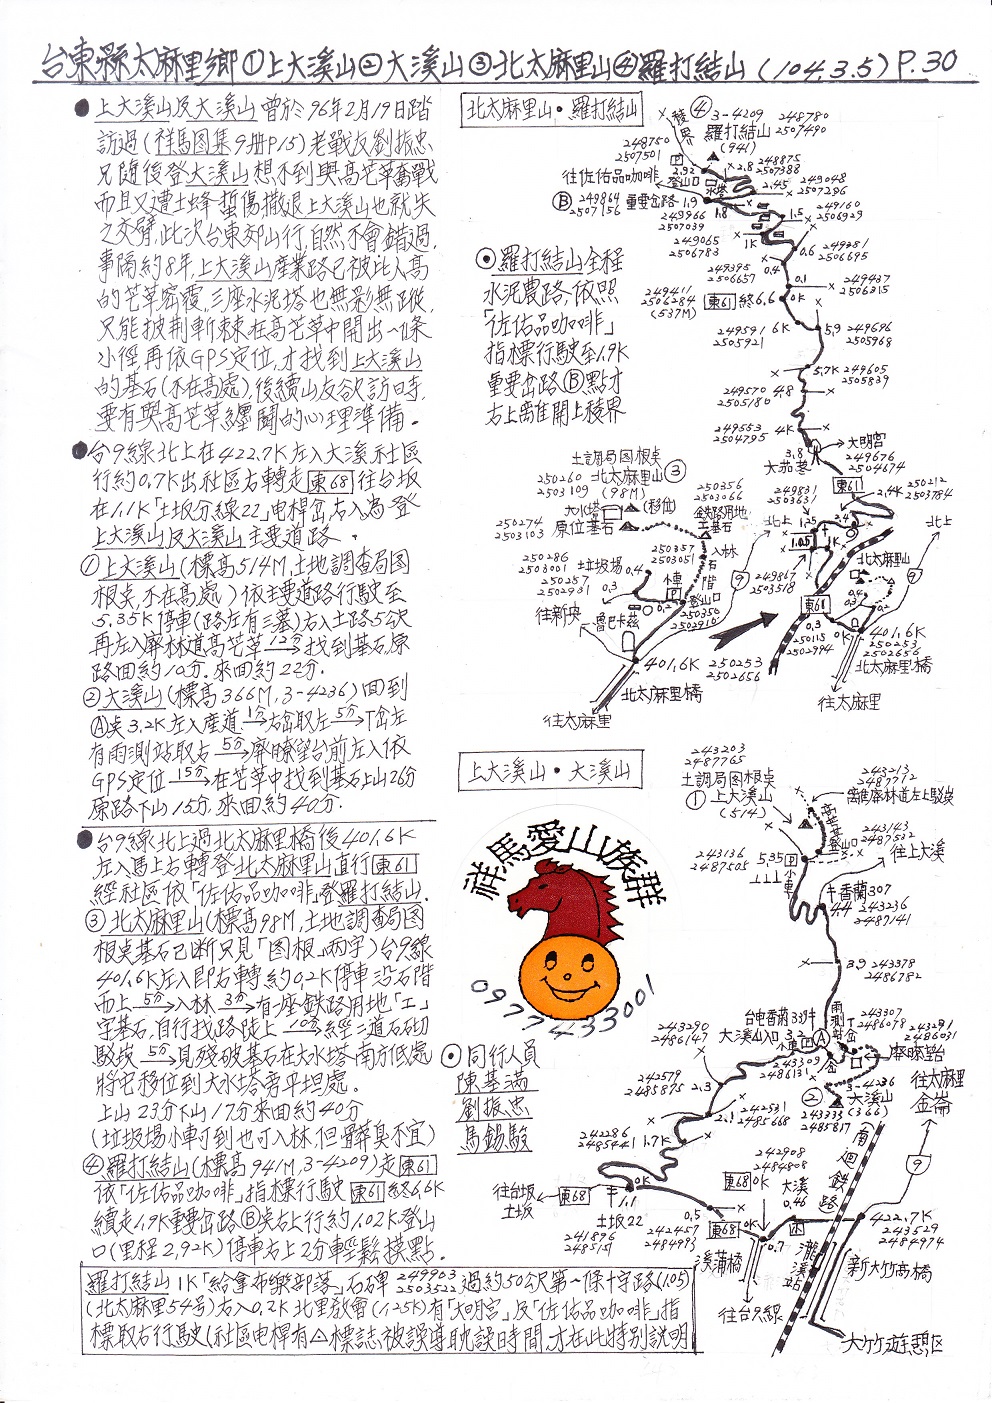 台東縣太麻里鄉①上大溪山②大溪山③北太麻里山④羅打結山(104.3.5)P.30
●上大溪山及大溪山曾於96年2月19日踏
訪過(祥馬图集9册P15)老戰友劉振忠
兄隨後登大溪山想不到與高芒草奮戰
而且又遭土蜂螫傷撤退上大溪山也就失
之交臂,此次台東郊山行,自然不會錯過,
事隔約8年,上大溪山產業路已被比人高
的芒草密霞,三座水泥塔也無影無蹤,
只能披荆斬棘在高芒草中開出一條
小徑再依GPS定位,才找到上大溪山
的基石(不在高處),後續山友欲訪時,
要有與高芒草纏鬪的心理準備.
●台9線北上在422.7K左入大溪社區
行約0.7K出社區右轉走東68往台坂
在1.1K「土坂分線22」電桿岔右入為登
上大溪山及大溪山主要道路.
①上大溪山(標高514M,土地調查局图
根点,不在高處)依主要道路行駛至
5.35K停車(路左有三墓)右入土路5公尺
再左入廢林道高芒草12分→找到基石原
路回約10分.來回約22分.
②大溪山(標高366M,3-4236)回到
Ⓐ点3.2K左入產道1分→右岔取左5分→T岔左
有雨測站取右5分→廢瞭望台前左入依
GPS定位15分→在芒草中找到基石上山26分
原路下山15分.來回約40分.
●台9線北上過北太麻里橋後401.6K
左入馬上右轉登北太麻里山直行東61
經社區依「佐佑品咖啡」登羅打結山.
③北太麻里山(標高98M,土地調查局图
根点基石已斷只見「图根」两字)台9線
401.6K左入即右轉約0.2K停車沿石階
而上5分→入林3分→有一座鉄路用地「工」
字基石,自行找路陡上10分→經二道石砌
駁崁5分→見殘破基石在大水塔南方低處
將它移位到大水塔旁平坦處.
上山23分下山17分來回約40分
(垃圾場小車可到也可入林.但髒臭不宜)
④羅打結山(標高941M,3-4209)走東61
依「佐佑品咖啡」指標行駛東61終6.6K
續走1.9K重要岔路Ⓑ点右上行約1.02K登山
口(里程2.92K)停車右上2分輕鬆摸點.
羅打結山1K「給拿布樂部落」石碑249903 2503522過約50公尺第一條十字路(1.05)
(北太麻里54号)右入0.2K北里教會(1.25K)有「大明宮」及「佐佑品咖啡」指
標取右行駛(社區电桿有△標誌被誤導耽誤時間,才在此特別說明
北太麻里山・羅打結山
④3-4209
羅打結山
(941)
248780
2507490
稜界
248750
2507501
2.92
登山口
水塔
2.8
248875
2507388
2.45
249048
2507296
往佐佑品咖啡
Ⓑ249864
2507156
重要岔路1.9
1.8
249966
2507039
1.5
249160
2506929
1K
249065
2506783
0.6
249251
2506695
249395
2506657
0.4
0.1
249437
2506315
249411
2506284
(537M)
東61終6.6
0K
249591
2505921
6K
5.9
249696
2505968
5.7K
249605
2505839
249570
2505180
4.8
249553
2504795
4K
3.8
大明宮
249676
2504674
大茄苳
東61
⊙羅打結山全程
水泥農路,依照
「佐佑品咖啡」
指標行駛至1.9K
重要岔路Ⓑ點才
右上離開上稜界
土調局图根点
北太麻里山③
(98M)
250260
2503109
大水塔
(移位)
250274
2503103
原位基石
250356
2503066
鉄路用地
工基石
入林
250357
2503051
250286
2503001
垃圾場
0.4
石階
250257
2502931
0.3
小車
P
登山口
0.2
250350
2502910
往新央
魯巴卡茲
401.6K
250253
2502656
北太麻里橋
往太麻里
9
249831
2503631
2.4K
250212
2503784
北上
1.25
2.4
1.05
1K
249867
2503518
北太麻里山
0.4
0.3
0.2
東61
0.3
250115
2502994
0K
401.6K
250253
2502656
北太麻里橋
往太麻里
北上
9
上大溪山・大溪山
祥馬愛山族群
0977433001
⊙同行人員
陳基滿
劉振忠
馬錫駿
243203
2487765
土調局图根点
①上大溪山
(514)
243213
2487712
離廢林道左上駁崁
243143
2487532
登山口
往上大溪
243136
2487505
5.35
P
小車
香蘭307
4.4
243236
2487141
3.9
243378
2486782
台电香蘭334
大溪山入口3.2
小車P
Ⓐ
雨測站
T岔
243307
2486078
243291
2486031
廢瞭望台
243290
2486147
243309
2486131
3-4236
②大溪山
243333
2485817
(366)
往太麻里
金崙
242579
2485875
2.3
2.1
242531
2485668
242286
2485441
1.7K
0K
往台坂
土坂
東68
1.1
土坂22
241896
2485151
0.5
242457
2484993
東68
242908
2484808
東68
0K
0K
0.7
大溪
0.46
溪蒲橋
往台9線
南迴鉄路
瀧溪站
9
422.7K
243529
2484974
新大竹高橋
大竹遊憩区